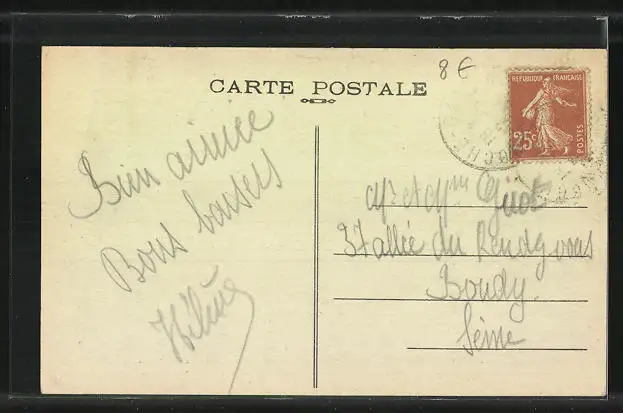 8 €
CARTE POSTALE
REPUBLIQUE FRANÇAISE
25c
POSTES
Bien arrivée
Bons baisers
Hélène
Mr et Mme Guot
37 allée du Rendez vous
Bondy
Seine